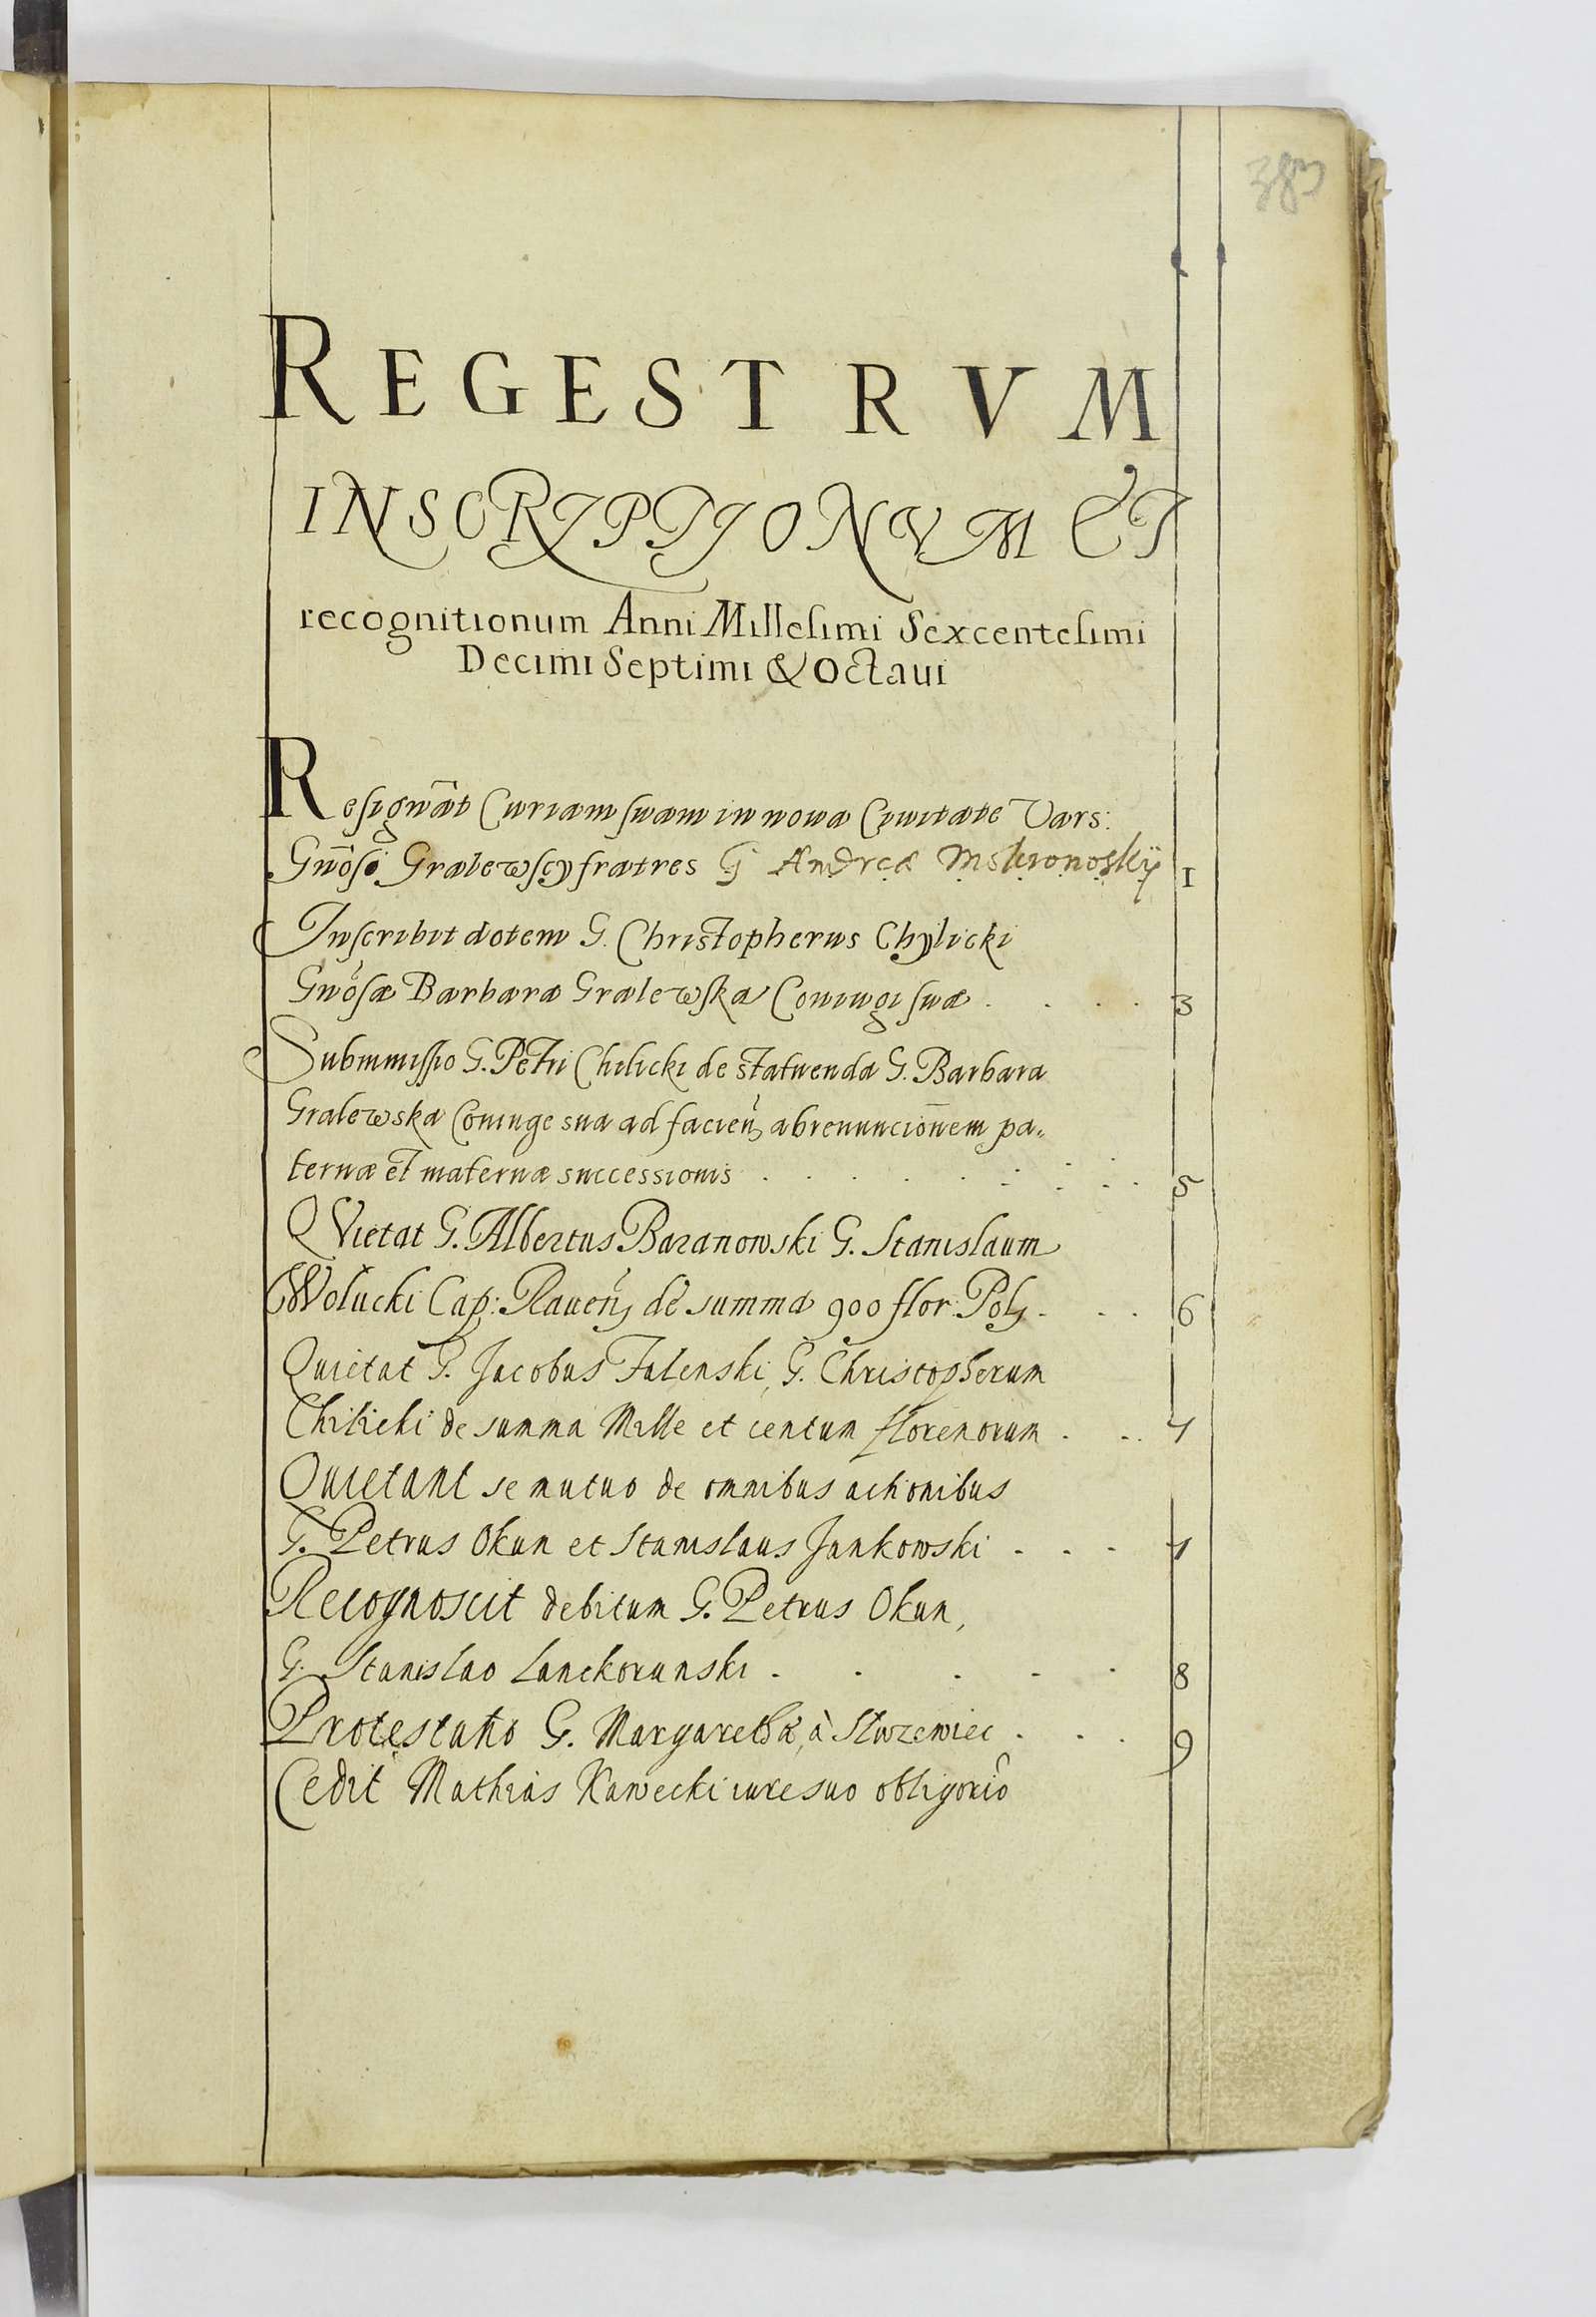 383
REGESTRVM
INSCRIPTIONVM ET
recognitionum Anni Millesimi Sexcentesimi
Decimi Septimi & Octaui
Resignãt Curiam suam in noua Ciuitate Vars:
Gnosi Gralewscy fratres G Andreæ Mokronoskÿ 1
Inscribit dotem G. Christopherus Chylicki
Gnosæ Barbaræ Gralewska Coniugi suæ . . . . 3
Submmissio G. Petri Chilicki de statuenda G. Barbara
Gralewska Coniuge sua ad facien abrenuncionem pa„
ternæ et maternæ successionis . . . . . . . . 5
QVietat G. Albertus Baranowski G. Stanislaum
Wolucki Cap: Rauen de summa 900 flor. Pol . . . 6
Quietat G. Jacobus Falenski, G. Christopherum
Chilicki de summa Mille et centum florenorum . . . 7
Quietant se mutuo de omnibus actionibus
G. Petrus Okun et Stanislaus Jankowski . . . 7
Recognoscit debitum G. Petrus Okun,
G. Stanislao Lanckorunski . . . . . 8
Protestatio G. Margarethæ, à Sluzewiec . . . 9
Cedit Mathias Kawecki iure suo obligorio